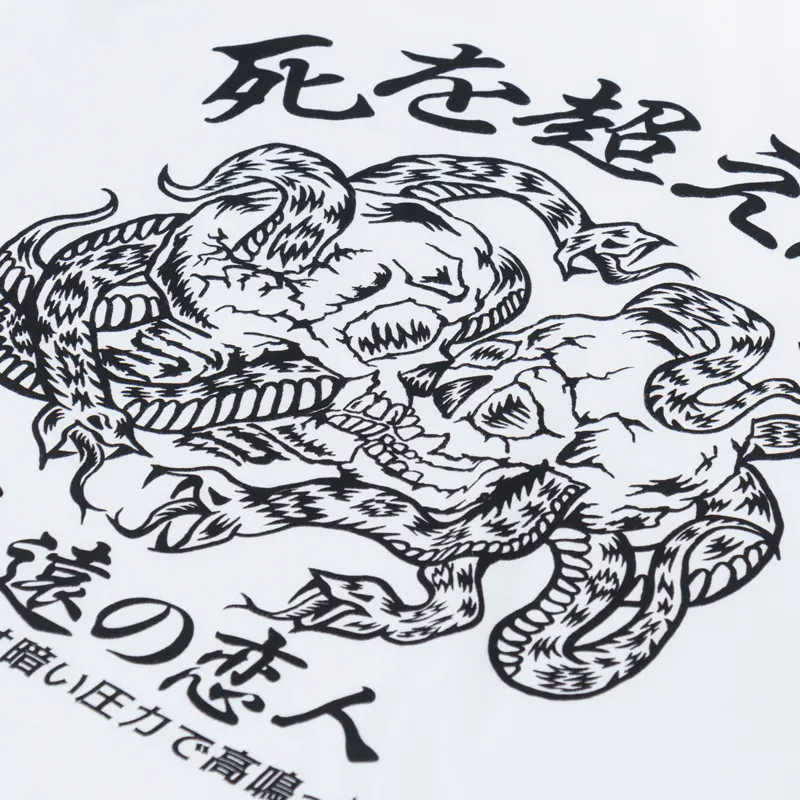 死を超え
遠の恋人
暗い圧力で高鳴っ